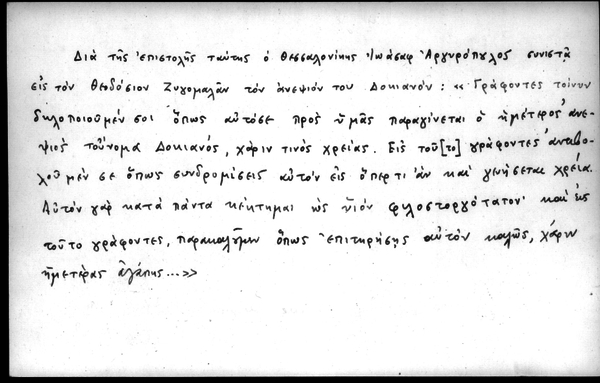 Διὰ τῆς ἐπιστολῆς ταύτης ὁ Θεσσαλονίκης Ἰωάσαφ Ἀργυρόπυλος συνιστᾶ
εἰς τὸν Θεοδόσιον Ζυγομαλᾶν τὸν ἀνεψιόν του Δοκιανόν: «Γράφοντες τοίνυν
δηλοποιοῦμέν σοι ὅπως αὐτόσε πρὸς ὑμᾶς παραγίνεται ὁ ἡμέτερος ἀνε-
ψιὸς τοὔνομα Δοκιανός, χάριν τινὸς χρείας. Εἰς τοῦ[το] γράφοντες ἀντιβο-
λοῦμέν σε ὅπως συνδρομίσεις αὐτὸν εἰς ὅπερ τι ἂν καὶ γενήσεται χρεία.
Αὐτὸν γὰρ κατὰ πάντα κέκτημαι ὡς υἱὸν φιλοστοργότατον καὶ εἰς
τοῦτο γράφοντες, παρακαλοῦμεν ὅπως ἐπιτηρήσῃς αὐτὸν καλῶς, χάριν
ἡμετέρας ἀγάπης...»